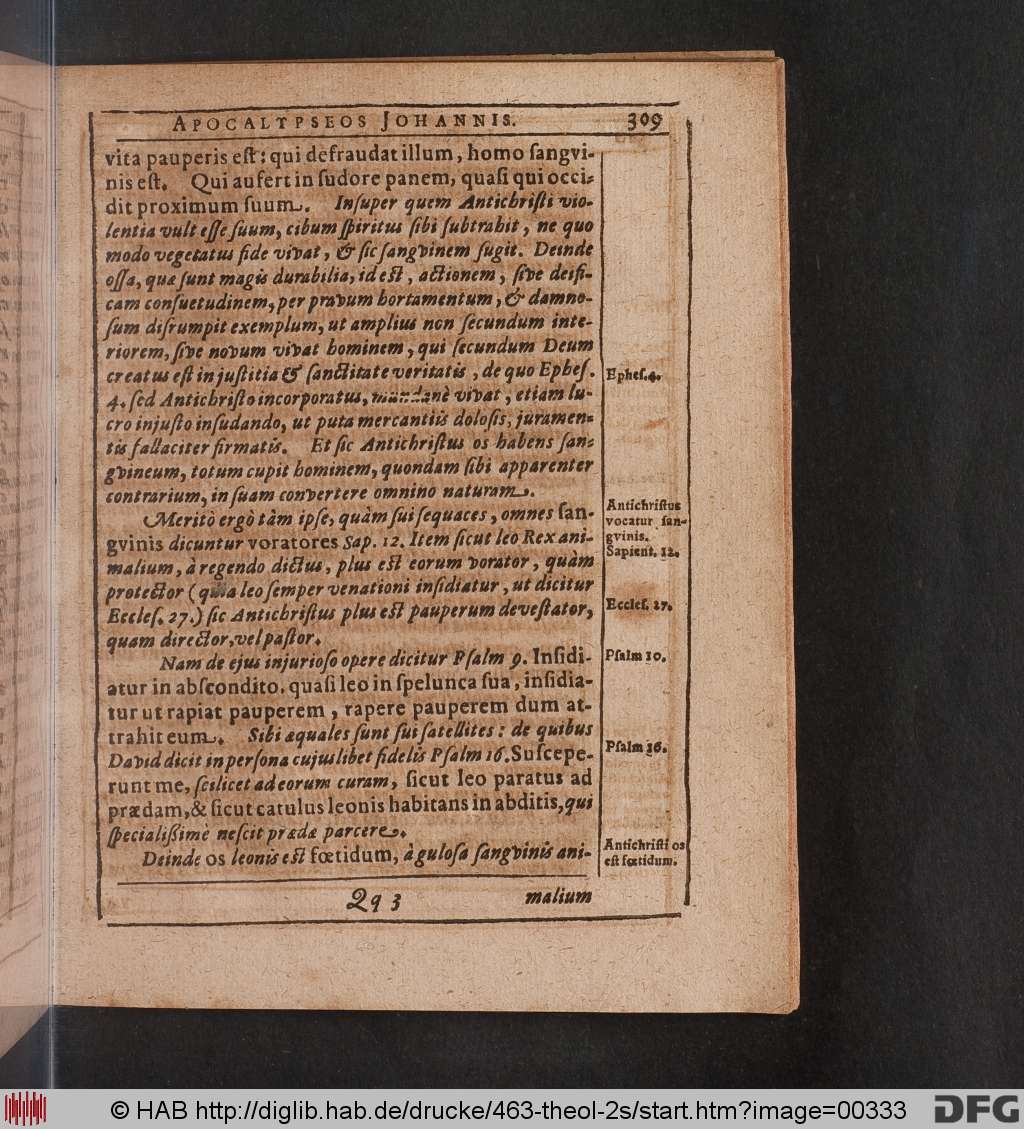 APOCALYPSEOS JOHANNIS. 309
vita pauperis est: qui defraudat illum, homo sangvi-
nis est. Qui aufert in sudore panem, quasi qui occi-
dit proximum suum. Insuper quem Antichristi vio-
lentia vult esse suum, cibum spiritus sibi subtrahit, ne quo
modo vegetatus fide vivat, & sic sangvinem sugit. Deinde
ossa, quæ sunt magis durabilia, id est, actionem, sive deifi-
cam consuetudinem, per pravum hortamentum, & damno-
sum disrumpit exemplum, ut amplius non secundum inte-
riorem, sive novum vivat hominem, qui secundum Deum
creatus est in justitia & sanctitate veritatis, de quo Ephes.
4. sed Antichristo incorporatus, mundanè vivat, etiam lu-
cro injusto insudando, ut puta mercantiis dolosis, juramen-
tis fallaciter firmatis. Et sic Antichristus os habens san-
gvineum, totum cupit hominem, quondam sibi apparenter
contrarium, in suam convertere omnino naturam.
Meritò ergò tàm ipse, quàm sui sequaces, omnes san-
gvinis dicuntur voratores Sap. 12. Item sicut leo Rex ani-
malium, à regendo dictus, plus est eorum vorator, quàm
protector (quia leo semper venationi insidiatur, ut dicitur
Eccles. 27.) sic Antichristus plus est pauperum devestator,
quam director, vel pastor.
Nam de ejus injurioso opere dicitur Psalm 9. Insidi-
atur in abscondito. quasi leo in spelunca sua, insidia-
tur ut rapiat pauperem, rapere pauperem dum at-
trahit eum. Sibi æquales sunt sui satellites: de quibus
David dicit in persona cujuslibet fidelis Psalm 16. Suscepe-
runt me, scilicet ad eorum curam, sicut leo paratus ad
prædam, & sicut catulus leonis habitans in abditis, qui
specialissimè nescit prædæ parcere.
Deinde os leonis est fœtidum, à gulosa sangvinis ani-
Qq 3 malium
Ephes. 4.
Antichristus
vocatur san-
gvinis.
Sapient. 12.
Eccles. 27.
Psalm 10.
Psalm 36.
Antichristi os
est fœtidum.
© HAB http://diglib.hab.de/drucke/463-theol-2s/start.htm?image=00333
DFG